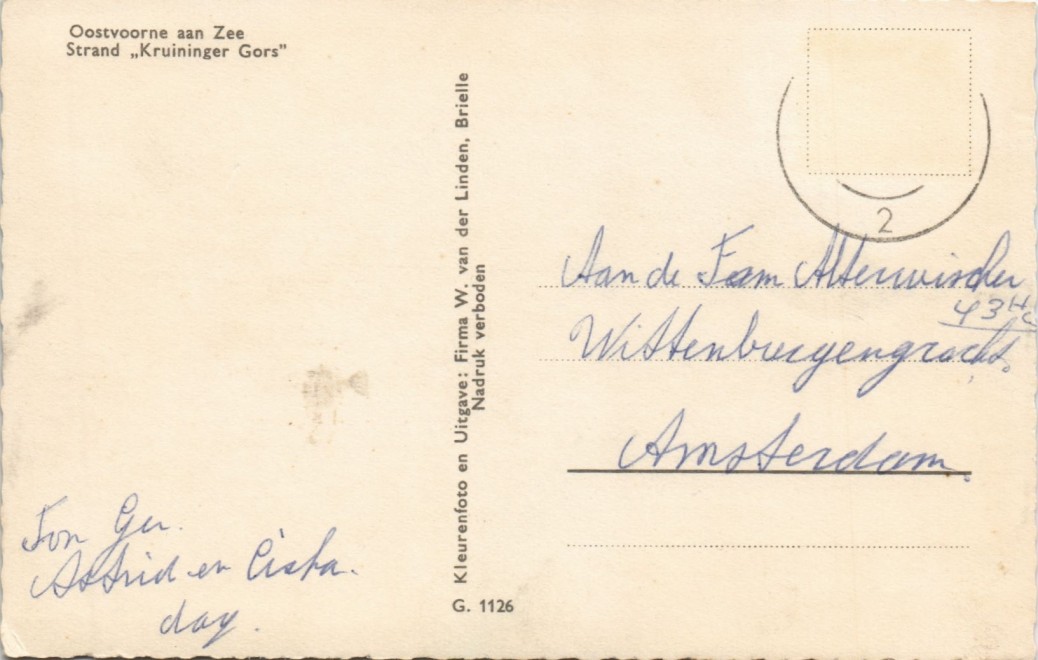 Oostvoorne aan Zee
Strand „Kruininger Gors”
Kleurenfoto en Uitgave: Firma W. van der Linden, Brielle
Nadruk verboden
G. 1126
2
Aan de Fam Alterwischer
43 Hs
Wittenburgengracht.
Amsterdam.
Ton Ger.
Astrid en Ciska.
day.